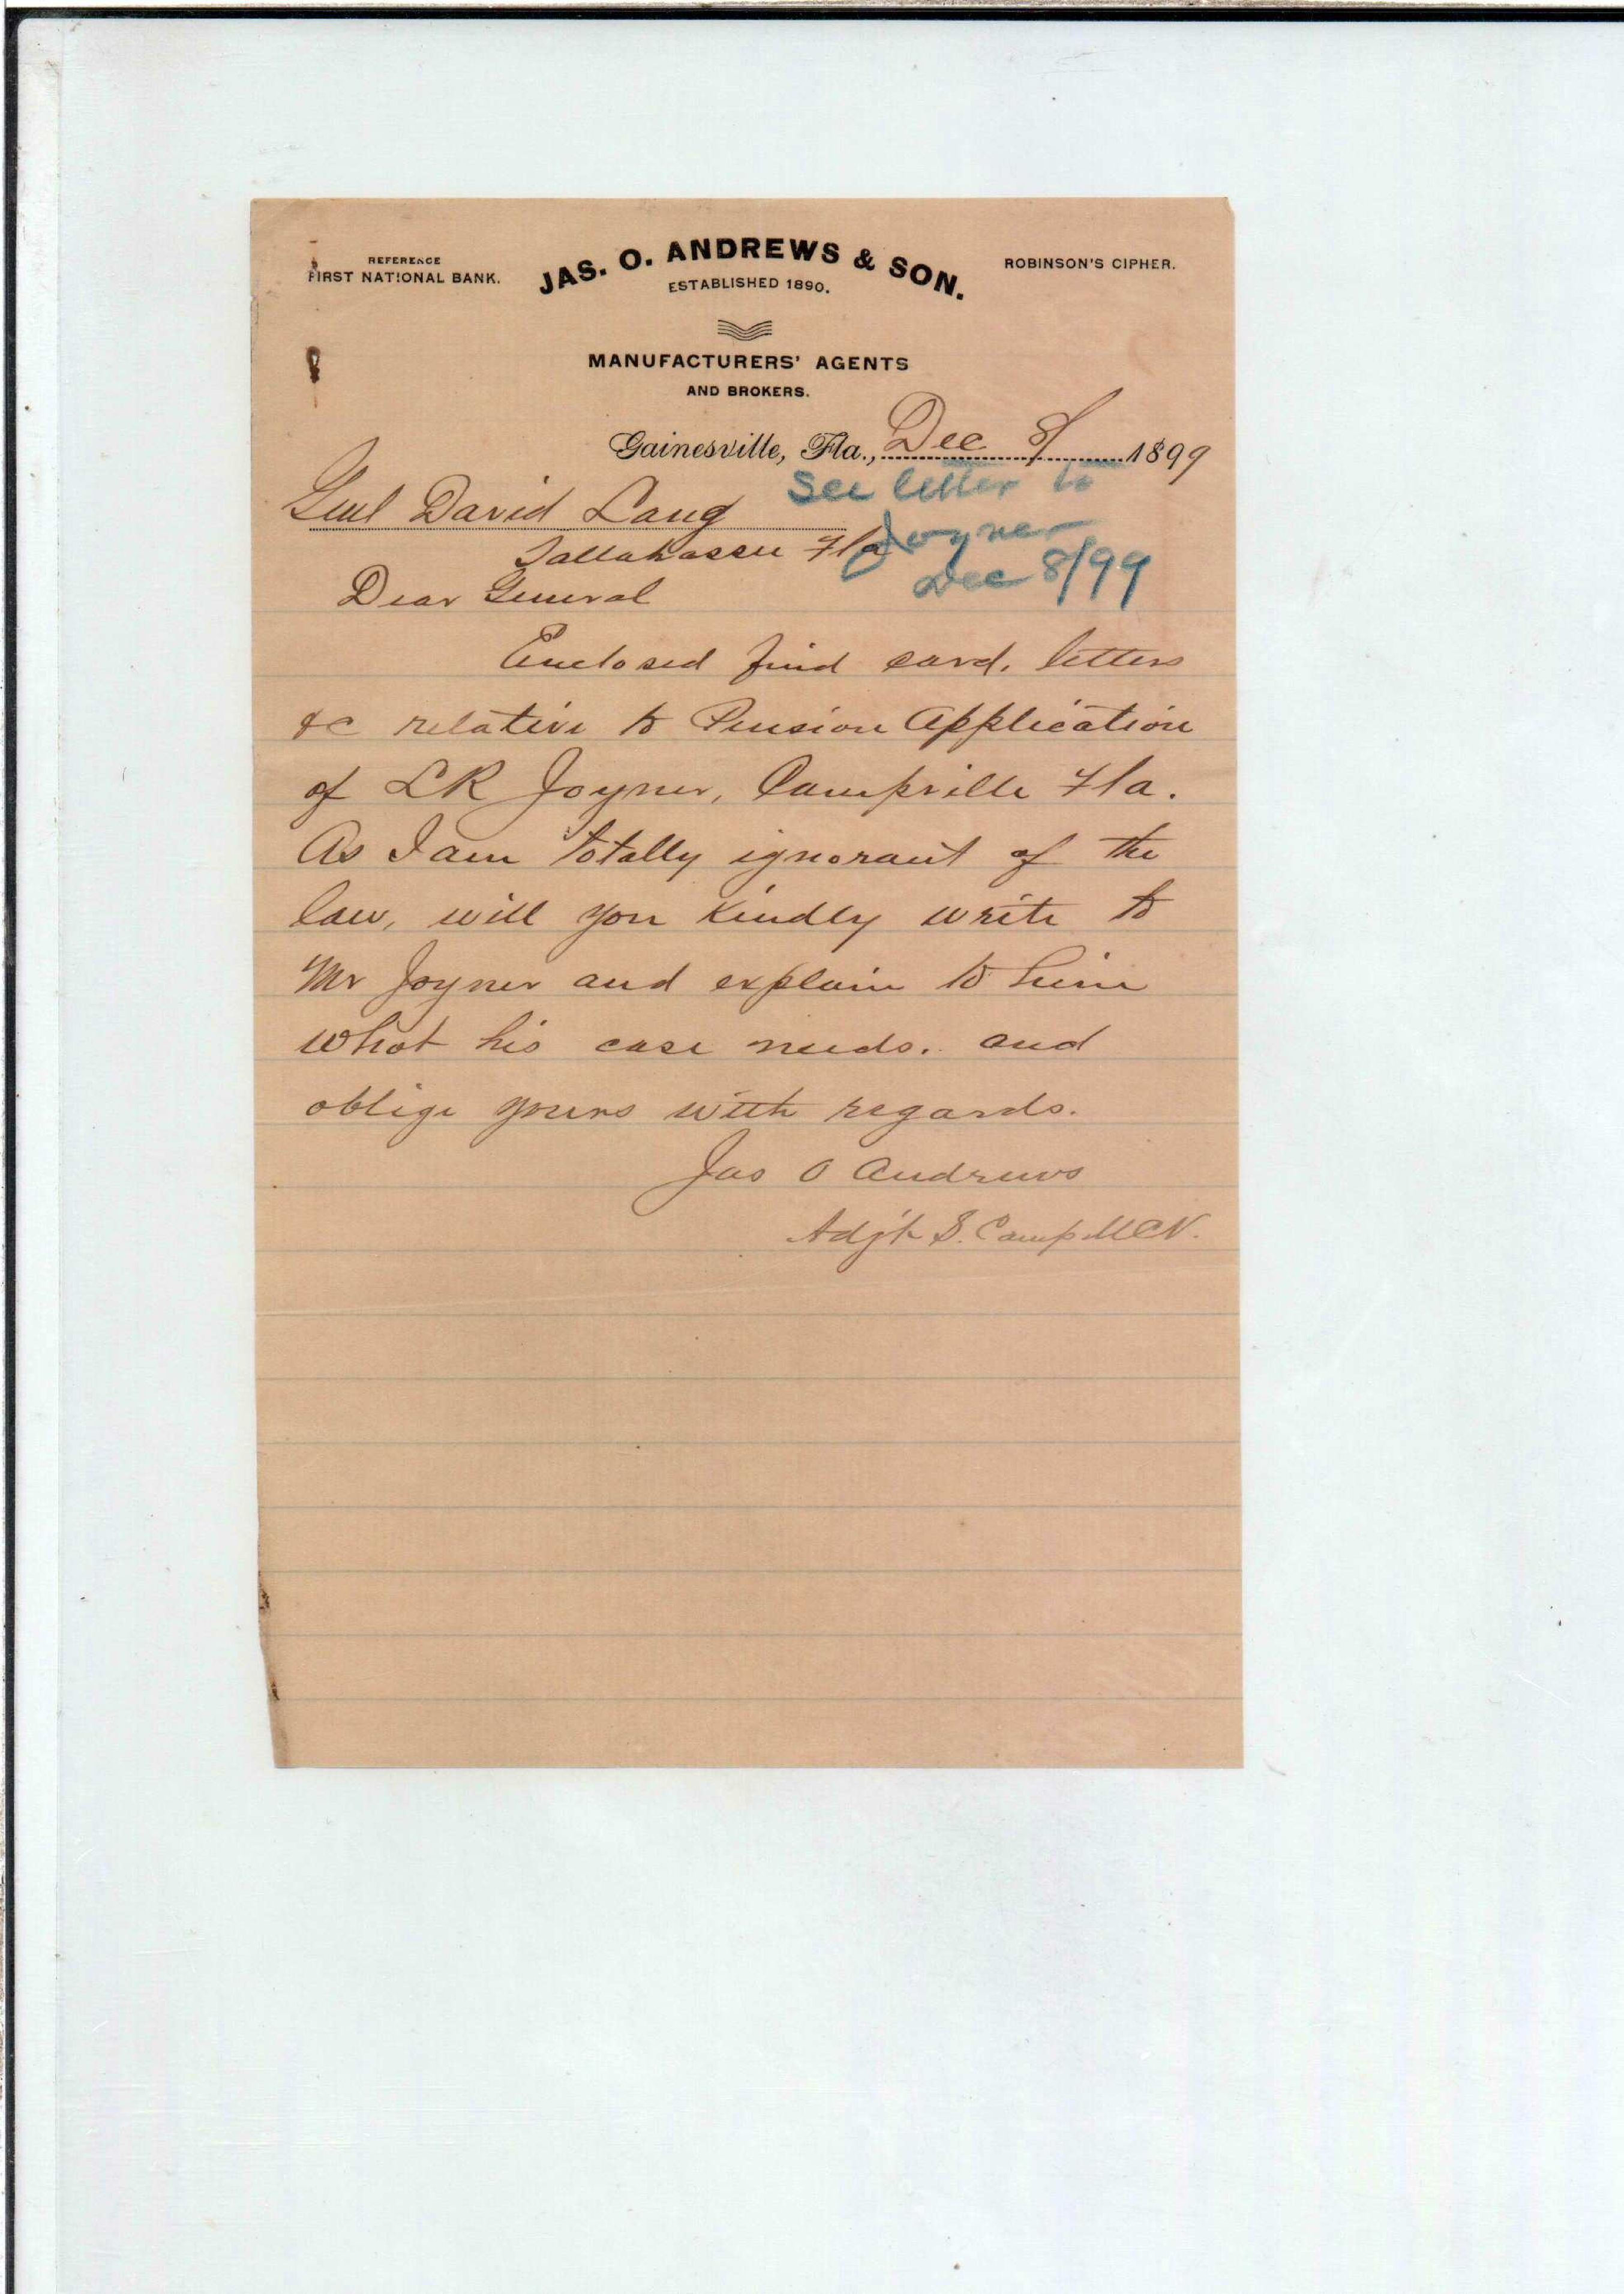 REFERENCE
FIRST NATIONAL BANK.
JAS. O. ANDREWS & SON.
ESTABLISHED 1890.
ROBINSON'S CIPHER.
MANUFACTURERS' AGENTS
AND BROKERS.
Gainesville, Fla., Dec 8/ 1899
See letter to
Joyner
Dec 8/99
Genl David Lang
Tallahassee Fla
Dear General
Enclosed find card, letters
&c relative to Pension Application
of LR Joyner, Campville Fla.
As I am totally ignorant of the
law, will you kindly write to
Mr Joyner and explain to him
what his case needs. and
oblige yours with regards.
Jas O Andrews
Adjt S. Camp UCV.